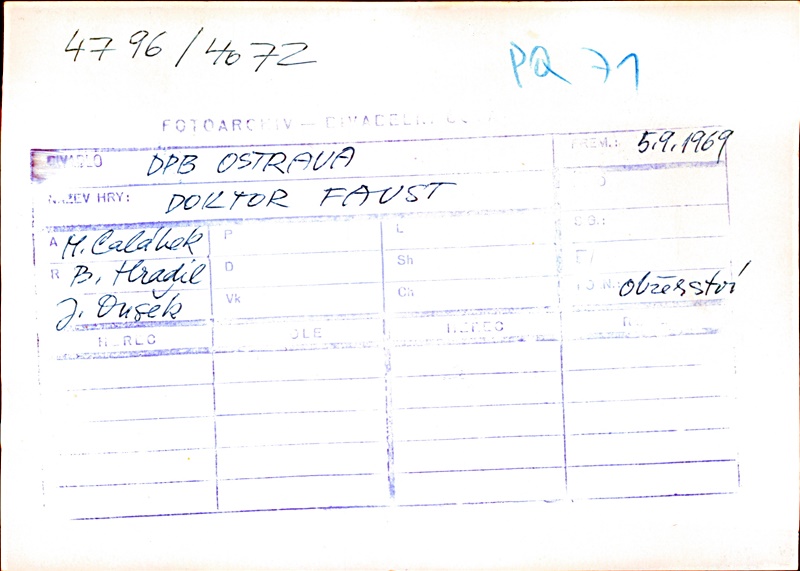 4796/4072
PQ 71
FOTOARCHIV – DIVADELNÍ
DIVADLO DPB OSTRAVA PREM.: 5.9.1969
NÁZEV HRY: DOKTOR FAUST
A M. Calábek P L SG.:
R B. Hradil D Sh
J. Dušek Vk Ch Obžerství
HEREC ROLE HEREC